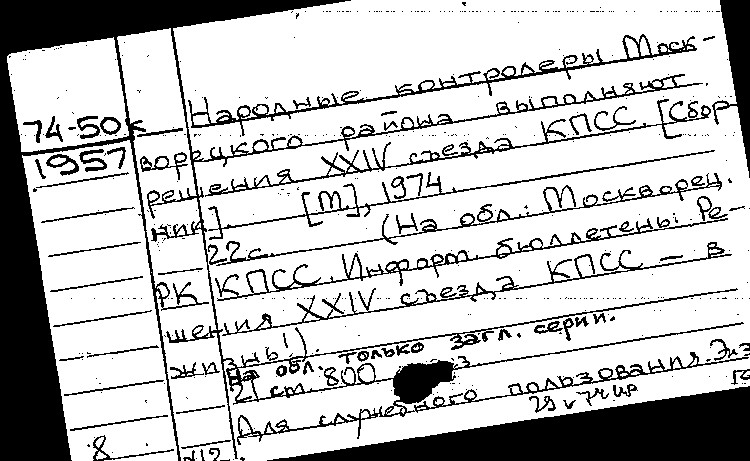 Народные контролеры Моск-
74-50к
1957
ворецкого района выполняют
решения XXIV съезда КПСС. [Сбор-
ник]. [М], 1974.
22с. (На обл.: Москворец.
РК КПСС. Информ. бюллетень: Ре-
шения XXIV съезда КПСС — в
жизнь!)
На обл. только загл. серии.
21 см. 800 э
Для служебного пользования. Экз
8
№12